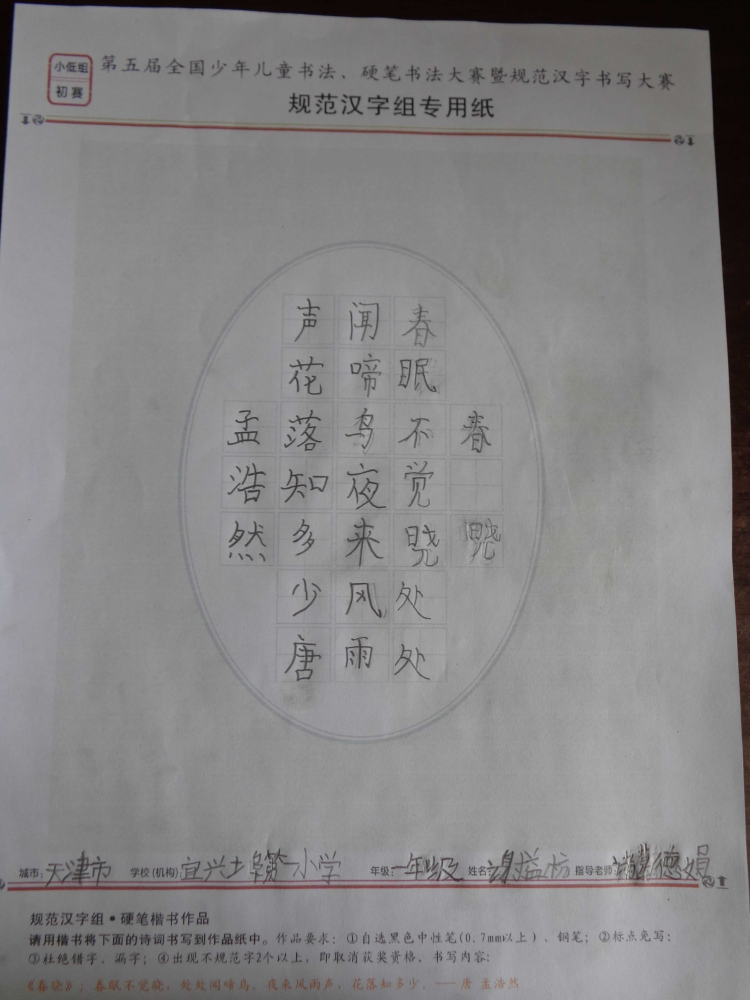 小低组
初赛
第五届全国少年儿童书法、硬笔书法大赛暨规范汉字书写大赛
规范汉字组专用纸
春晓
春眠不觉晓处处
闻啼鸟夜来风雨
声花落知多少唐
孟浩然
城市:天津市 学校(机构):宜兴埠第一小学 年级:一年级 姓名:谢益 指导老师:德娟
规范汉字组•硬笔楷书作品
请用楷书将下面的诗词书写到作品纸中。作品要求:①自选黑色中性笔(0.7mm以上)、钢笔;②标点免写;
③杜绝错字、漏字;④出现不规范字2个以上,即取消获奖资格。书写内容:
《春晓》:春眠不觉晓,处处闻啼鸟。夜来风雨声,花落知多少。——唐 孟浩然